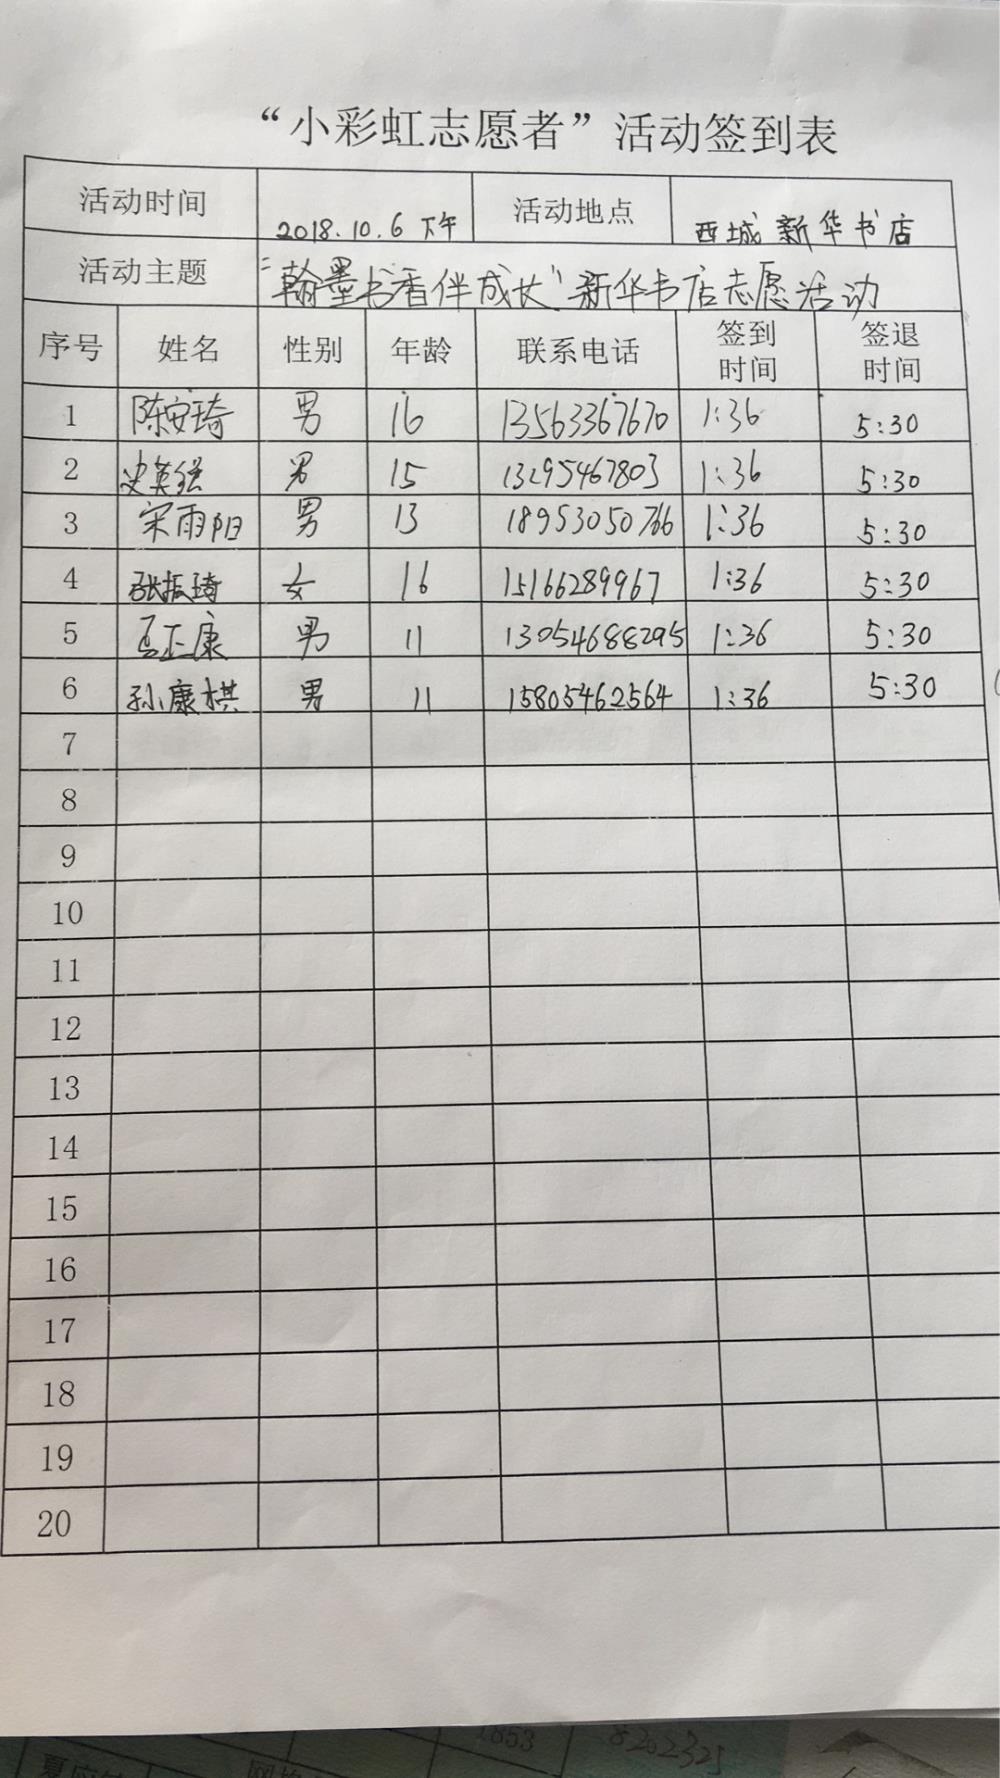 “小彩虹志愿者”活动签到表
活动时间 2018.10.6 下午 活动地点 西城新华书店
活动主题 “翰墨书香伴成长”新华书店志愿活动
序号 姓名 性别 年龄 联系电话 签到时间 签退时间
1 陈安琦 男 16 13563367670 1:36 5:30
2 史英强 男 15 13295467803 1:36 5:30
3 宋雨阳 男 13 18953050766 1:36 5:30
4 张振琦 女 16 15166289967 1:36 5:30
5 正康 男 11 13054688295 1:36 5:30
6 孙康棋 男 11 15805462564 1:36 5:30
7
8
9
10
11
12
13
14
15
16
17
18
19
20
1853 8202325